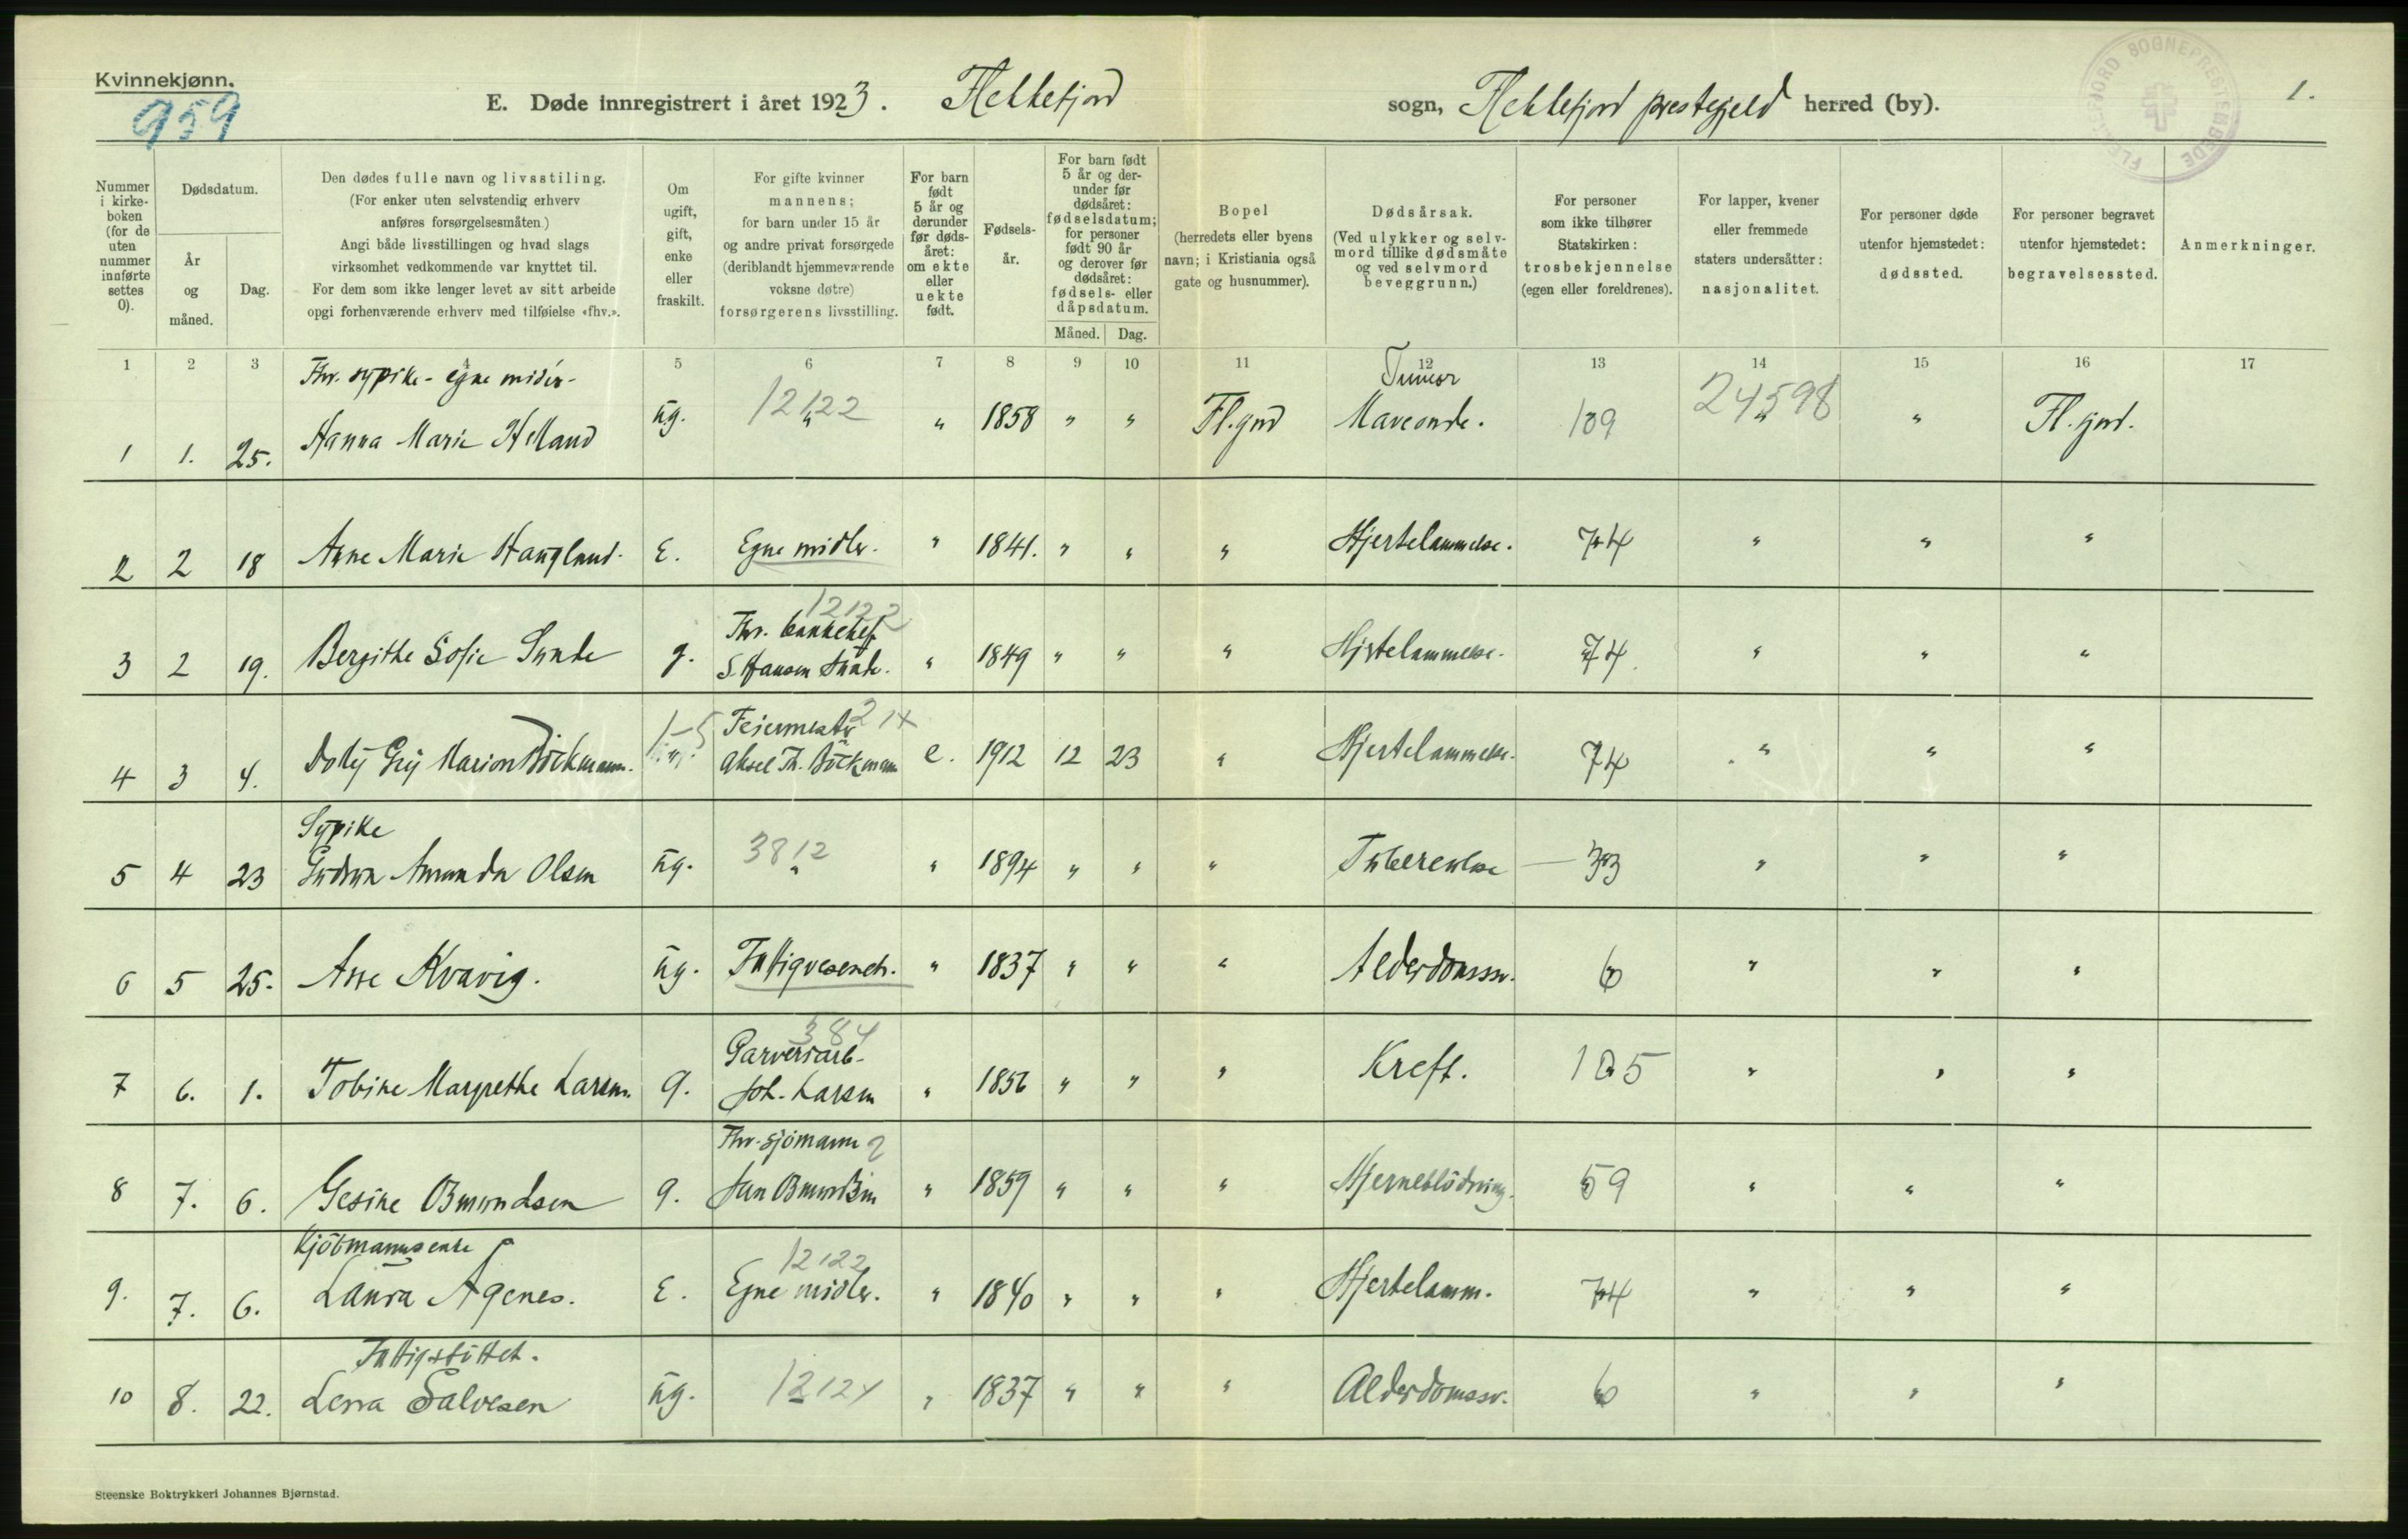 Kvinnekjønn.
959
E. Døde innregistrert i året 1923. Flekkefjord sogn, Flekkefjord prestegjeld herred (by).
1.
FLEKKEFJORD SOGNEPRESTEMBEDE
Nummer i kirke-boken (for de uten nummer innførte settes 0).
Dødsdatum.
År og måned.
Dag.
Den dødes fulle navn og livsstiling.
(For enker uten selvstendig erhverv
anføres forsørgelsesmåten.)
Angi både livsstillingen og hvad slags
virksomhet vedkommende var knyttet til.
For dem som ikke lenger levet av sitt arbeide
opgi forhenværende erhverv med tilføielse «fhv.».
Om ugift, gift, enke eller fraskilt.
For gifte kvinner
mannens;
for barn under 15 år
og andre privat forsørgede
(deriblandt hjemmeværende
voksne døtre)
forsørgerens livsstilling.
For barn født 5 år og derunder før døds-året: om ekte eller uekte født.
Fødsels-år.
For barn født 5 år og der-under før dødsåret: fødselsdatum; for personer født 90 år og derover før dødsåret: fødsels- eller dåpsdatum.
Måned. Dag.
Bopel
(herredets eller byens
navn; i Kristiania også
gate og husnummer).
Dødsårsak.
(Ved ulykker og selv-
mord tillike dødsmåte
og ved selvmord
beveggrunn.)
For personer
som ikke tilhører
Statskirken:
trosbekjennelse
(egen eller foreldrenes).
For lapper, kvener
eller fremmede
staters undersåtter:
nasjonalitet.
For personer døde
utenfor hjemstedet:
dødssted.
For personer begravet
utenfor hjemstedet:
begravelsessted.
Anmerkninger.
1 2 3 4 5 6 7 8 9 10 11 12 13 14 15 16 17
Fhv. sypike - egne midler - Tumor
1 1. 25. Hanna Marie Helland ug. 12122 " " 1858 " " Fl.fjord Maveonde. 109 24598 " " Fl.fjord.
2 2 18 Anne Marie Haugland. E. Egne midler. " 1841. " " " Hjertelammelse. 74 " " "
12122
Fhv. bankchef
3 2 19. Bergithe Sofie Sunde g. S. Hansen Sunde. " 1849 " " " Hjertelammelse. 74 " " "
Feiermester 214
4 3 4. Dolly Gry Marion Böckmann. 1-5 Aksel Th. Böckmann e. 1912 12 23 " Hjertelammelse. 74 " " "
Sypike
5 4 23 Gudrun Amanda Olsen ug. 3812 " " 1894 " " " Tuberculose — 33 " " "
6 5 25. Asse Kvavig. ug. Fattigvesenet. " 1837 " " " Alderdomssv. 6 " " "
384
Garveriarb.
7 6. 1. Tobine Margrethe Larsen. g. Joh. Larsen " 1856 " " " Kreft. 105 " " "
Fhv. sjömann 2
8 7. 6. Gesine Osmundsen g. Jan Osmundsen " 1859 " " " Hjerneblödning. 59 " " "
Kjöbmannsenke 12122
9. 7. 6. Laura Agenes. E. Egne midler. " 1840 " " " Hjertelamm. 74 " " "
Fattigstöttet.
10 8. 22. Lena Salvesen ug. 12124 " 1837 " " " Alderdomssv. 6 " " "
Steenske Boktrykkeri Johannes Bjørnstad.